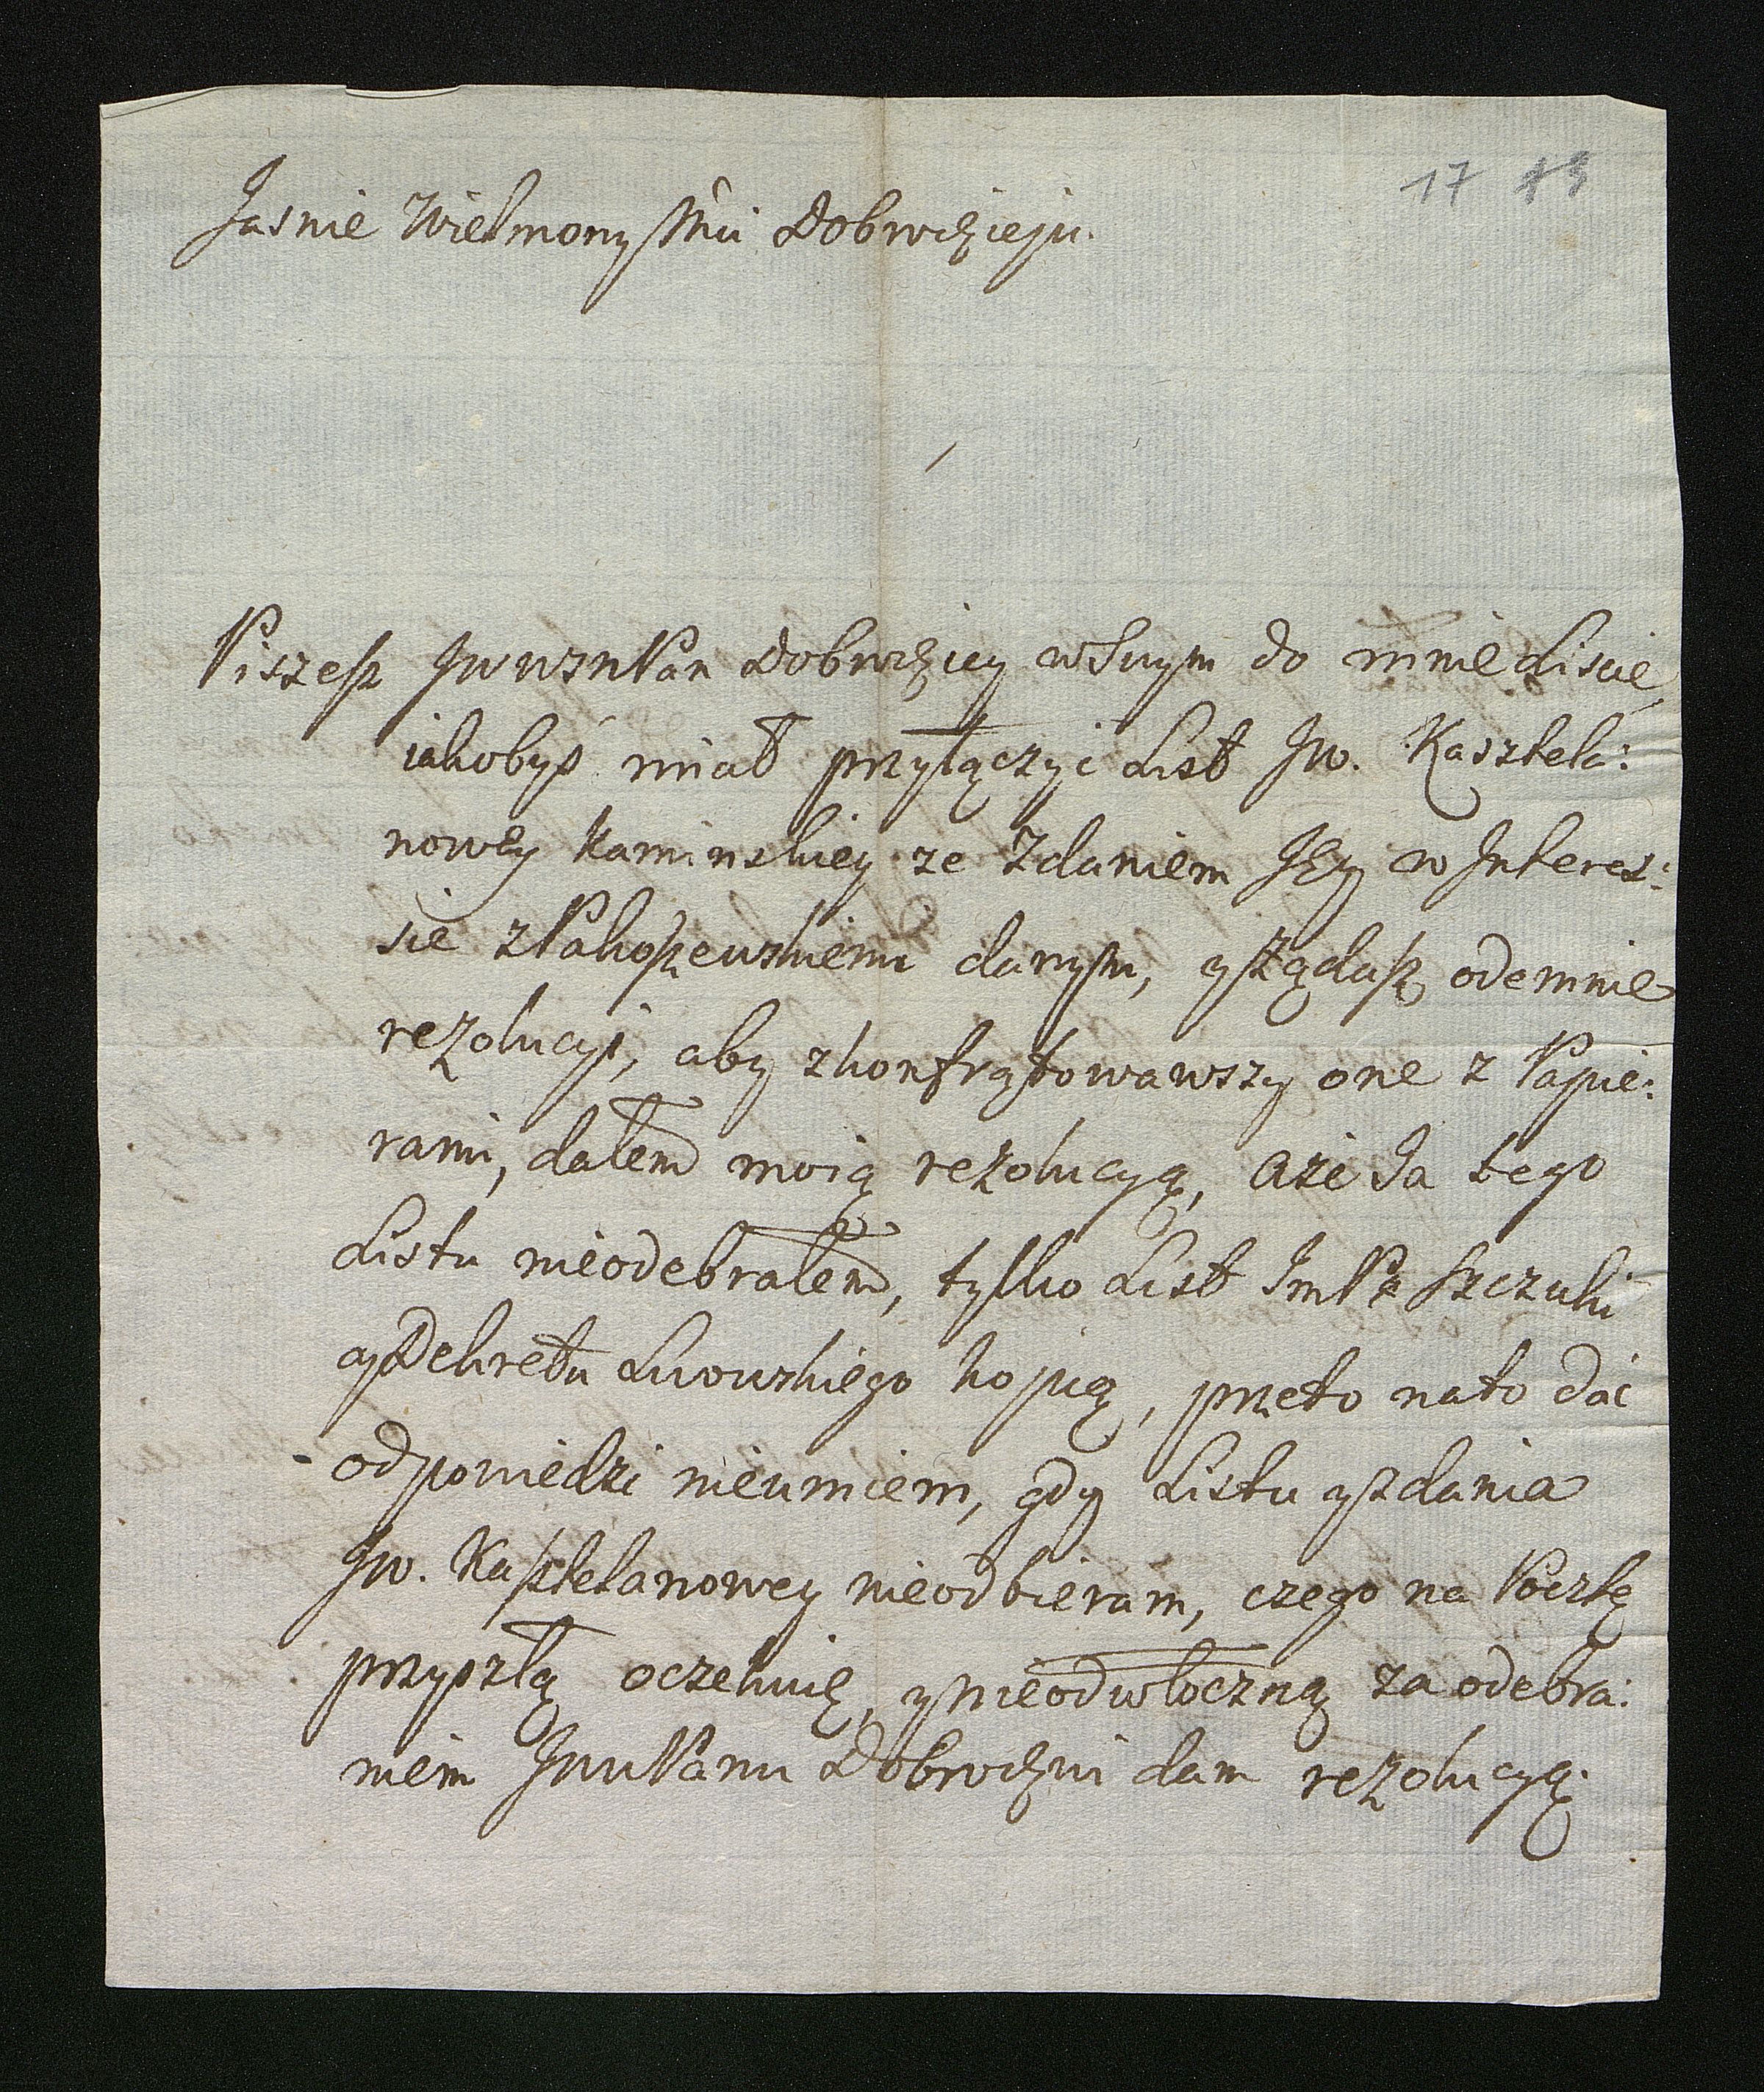 17
Jasnie Wielmony Mci Dobrodzieju.
Piszesz JWWMPan Dobrodziey w Swym do mnie Liscie
iakobyś miał przyłączyć List JW. Kasztela:
nowey Kaminskiey ze Zdaniem Jey w Interes:
sie z Pakoszewskiemi danym, y żądasz odemnie
rezolucyi, aby zkonfrątowawszy one z Papie:
rami, dałem moią rezolucyą, aże Ja tego
Listu nieodebrałem, tylko List ImPa Szczuki
y Dekretu Lwowskiego kopią, przeto nato dać
odpowiedzi nieumiem, gdy Listu y zdania
JW. Kasztelanowey nieodbieram, czego na Pocztę
przyszłą oczekuię, y nieodwłoczną za odebra:
niem JWWPanu Dobrodziei dam rezolucyą.